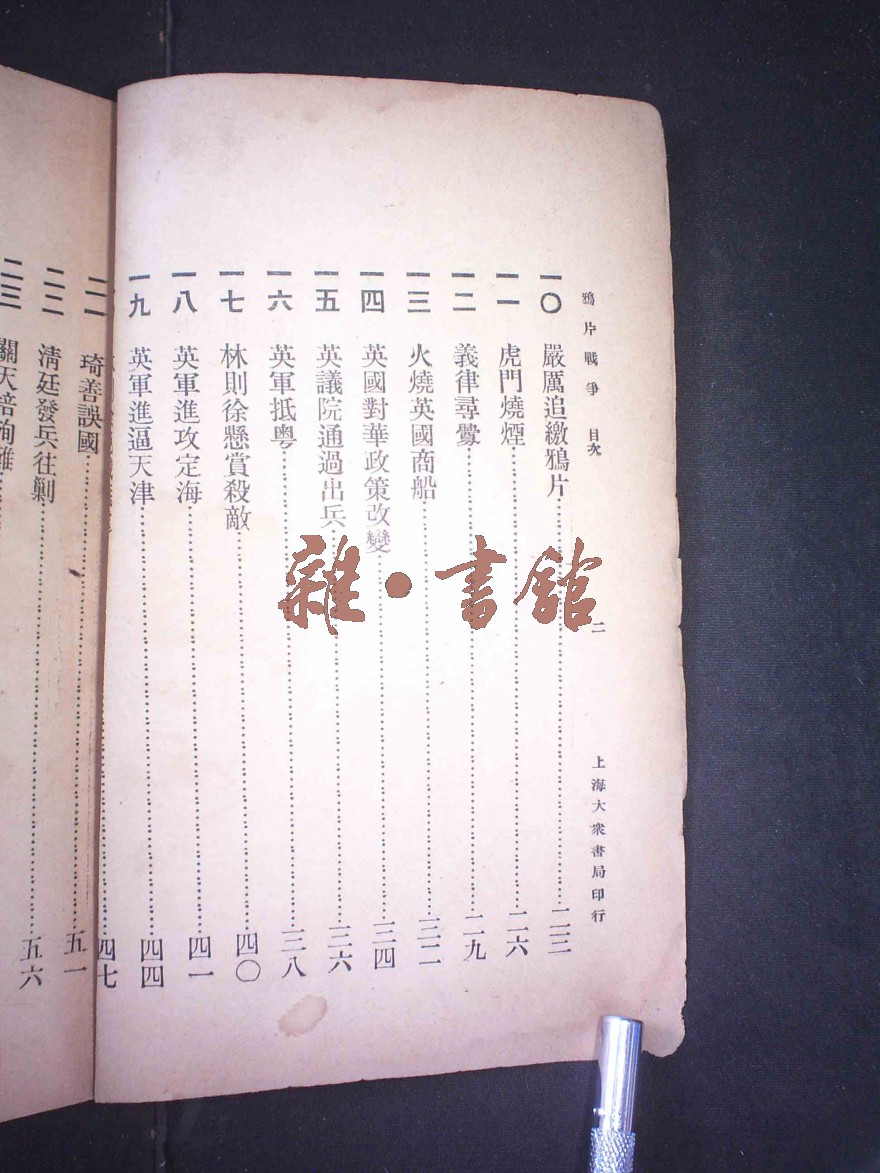 鴉片戰爭 目次 二 上海大衆書局印行
一〇 嚴厲追繳鴉片 二三
一一 虎門燒煙 二六
一二 義律尋釁 二九
一三 火燒英國商船 三二
一四 英國對華政策改變 三四
一五 英議院通過出兵 三六
一六 英軍抵粵 三八
一七 林則徐懸賞殺敵 四〇
一八 英軍進攻定海 四一
一九 英軍進逼天津 四四
四七
二一 琦善誤國 五一
二二 清廷發兵往剿 五六
二三 關天培殉難
雜·書館